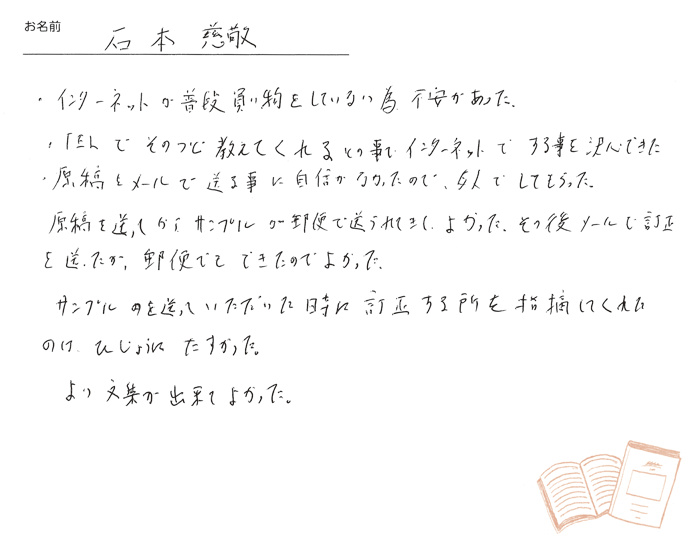 お名前 石本 慈敬
・インターネットが普段買い物をしていない為 不安があった。
・TELで そのつど 教えてくれるとの事で インターネットで する事を決心できた
・原稿をメールで送る事に自信がなかったので、 してもらった。
原稿を送ってから サンプルが郵便で送られてきて よかった。その後 メールで訂正
を送ったが、郵便でも できたのでよかった。
サンプル を送っていただいた時に 訂正する所を指摘してくれた
のは、ひじょうに たすかった。
より 文集が 出来て よかった。